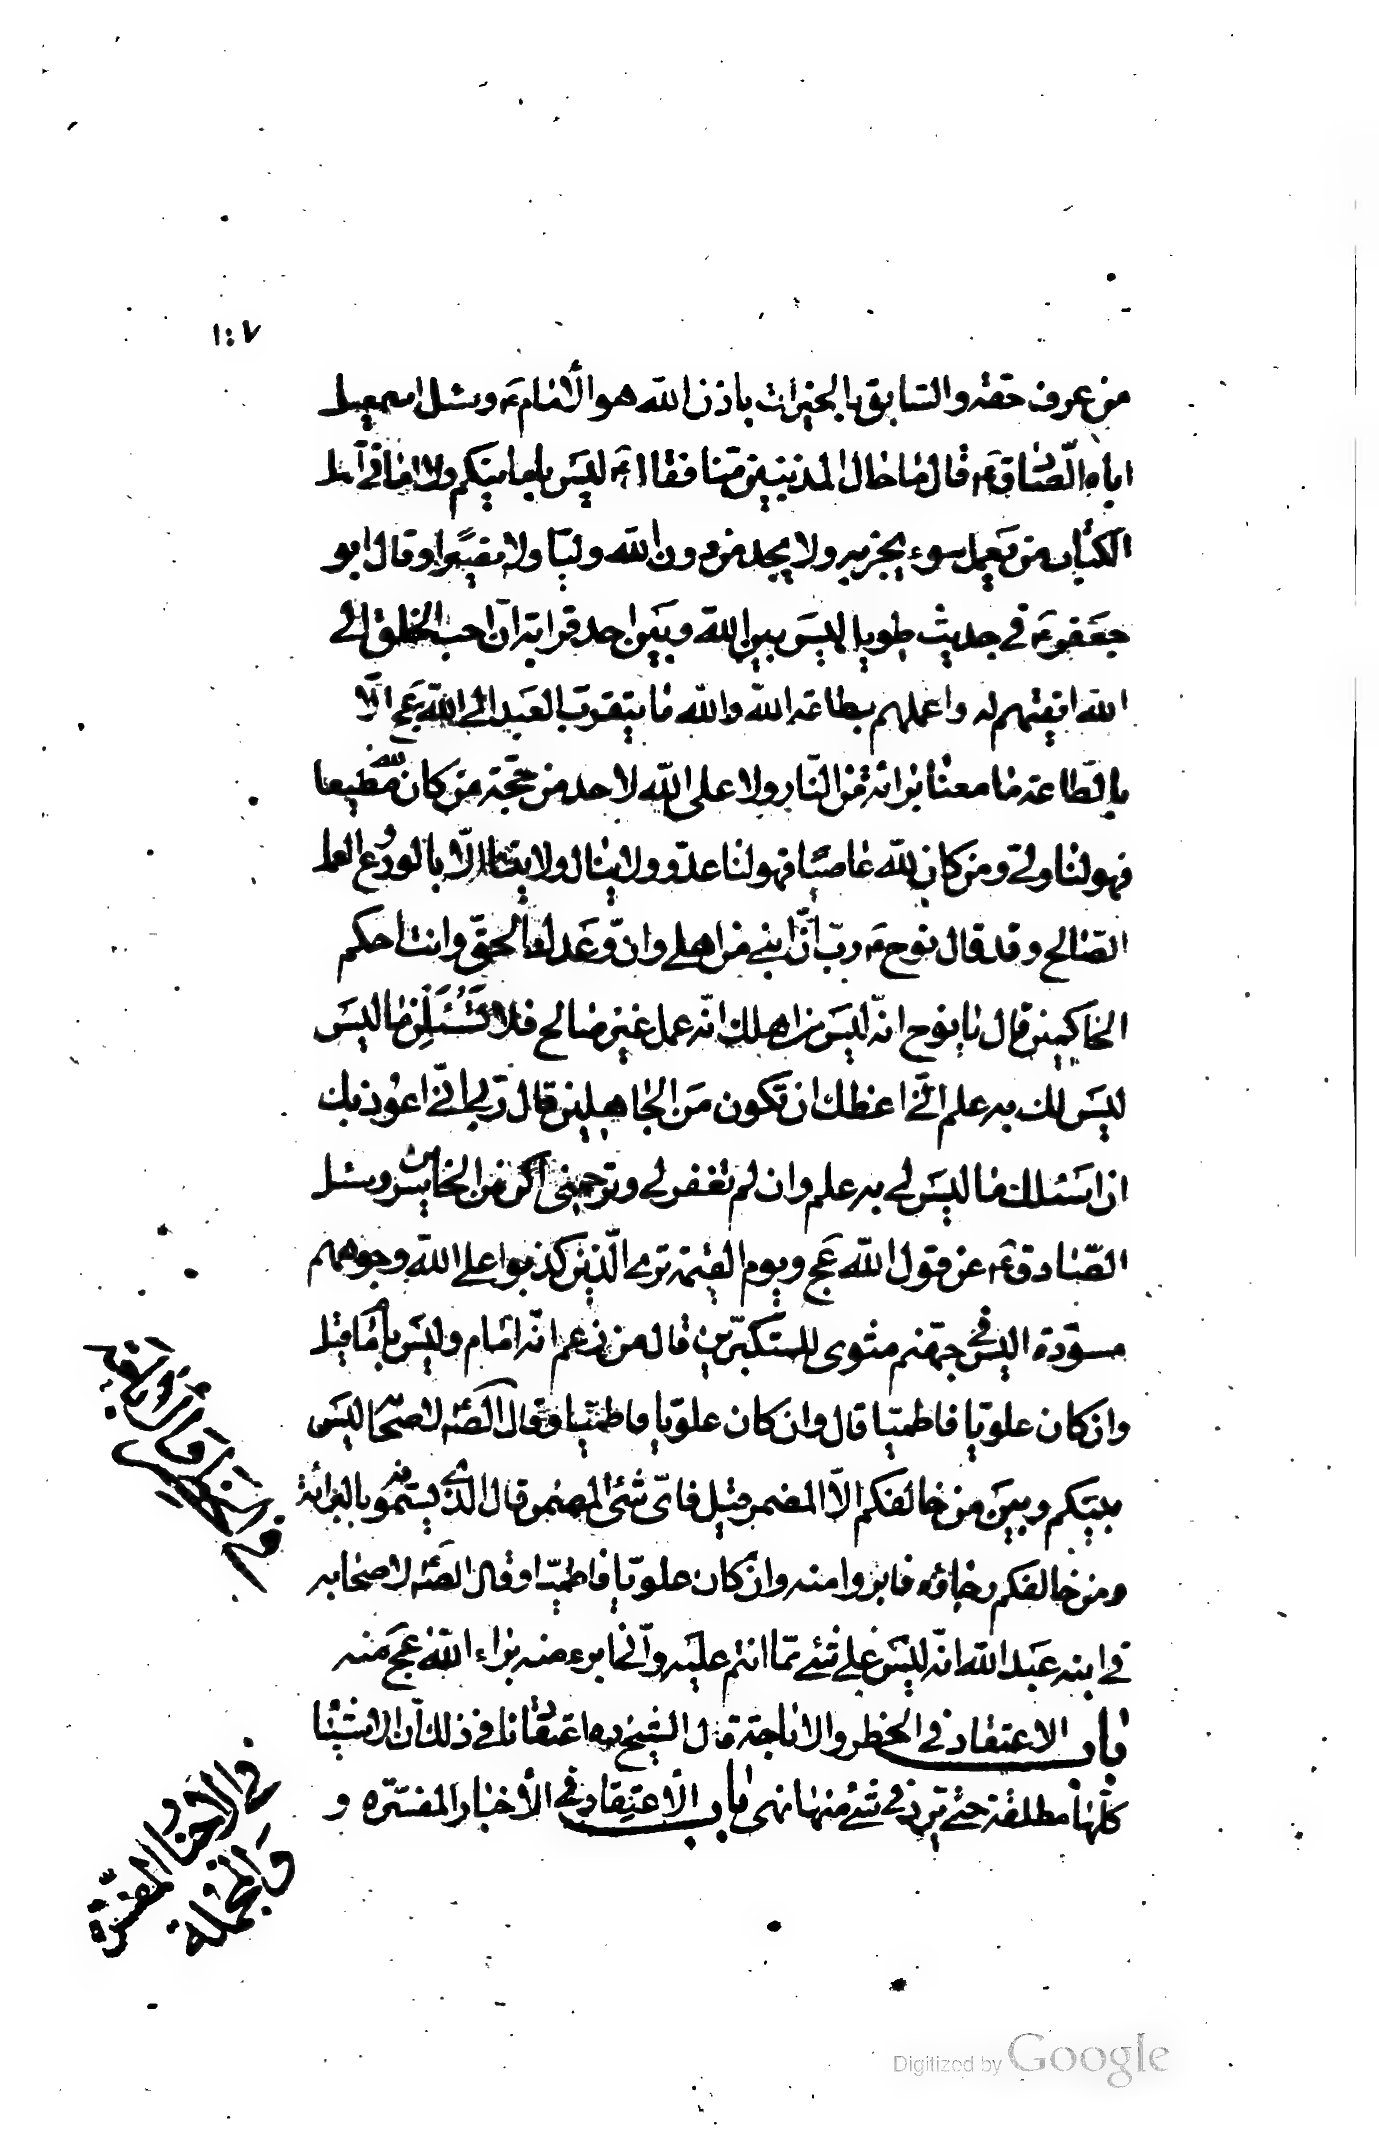 ١٠٧
من عرف حقه والسابق بالخيرات باذن الله هو الامام ع وسئل اسمعيل
اباه الصادق ع قال ما حال المذنبين منا فقال ع ليس بامانيكم ولا امانى اهل
الكتاب من يعمل سوء يجز به ولا يجد من دون الله وليا ولا نصيرا وقال ابو
جعفر ع فى حديث طويل ليس بين الله وبين احد قرابة ان احب الخلق الى
الله اتقيهم له واعملهم بطاعة الله والله ما يتقرب العبد الى الله عج الا
بالطاعة ما معنا براءة من النار ولا على الله لاحد من حجة من كان لله مطيعا
فهو لنا ولى ومن كان لله عاصيا فهو لنا عدو ولا ينال ولايتنا الا بالورع والعمل
الصالح وقد قال نوح ع رب ان ابنى من اهلى وان وعدك الحق وانت احكم
الحاكمين قال يا نوح انه ليس من اهلك انه عمل غير صالح فلا تسئلن ما ليس
ليس لك به علم انى اعظك ان تكون من الجاهلين قال رب انى اعوذ بك
ان اسئلك ما ليس لى به علم وان لم تغفر لى وترحمنى اكن من الخاسرين وسئل
الصادق ع عن قول الله عج ويوم القيمة ترى الذين كذبوا على الله وجوههم
مسودة اليس فى جهنم مثوى للمتكبرين قال من زعم انه امام وليس بامام قيل
وان كان علويا فاطميا قال وان كان علويا فاطميا وقال الص ع لاصحابه ليس
بينكم وبين من خالفكم الا المضمر قيل فاى شئ المضمر قال الذى يسمونه بالبرائة
ومن خالفكم وجازه فابروا منه وان كان علويا فاطميا وقال الص ع لاصحابه
فى ابنه عبد الله انه ليس على شئ مما انتم عليه وانى ابرء منه براء الله عج منه
باب الاعتقاد فى الحظر والاباحة قال الشيخ ره اعتقادنا فى ذلك ان الاشياء
كلها مطلقة حتى يرد فى شئ منها نهى باب الاعتقاد فى الاخبار المفسرة و
فى الاخبار المفسرة
والمجملة